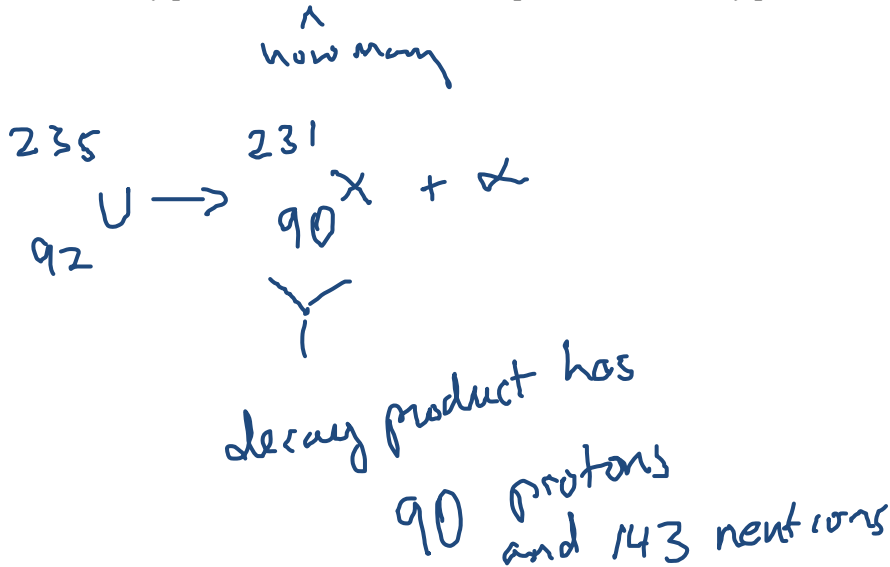 how many
235 231
U → X + α
92 90
decay product has
90 protons
and 143 neutrons